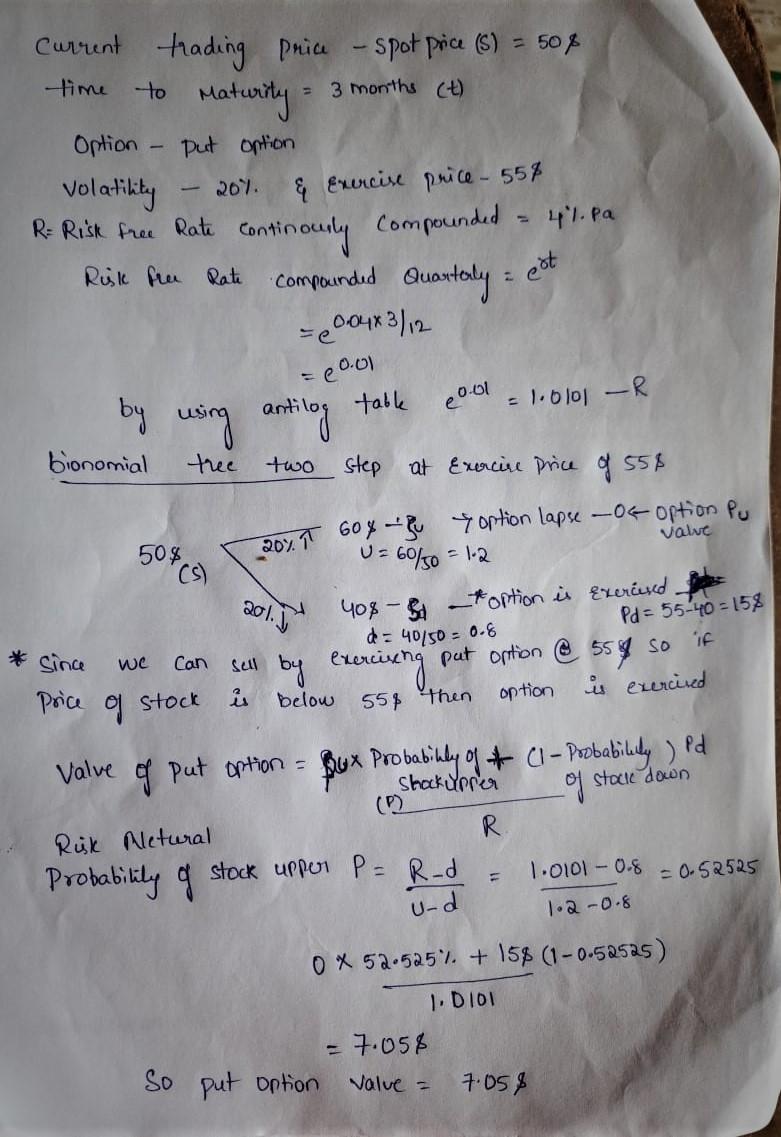 Current trading price - spot price (S) = 50$
time to Maturity = 3 months (t)
Option - put option
Volatility - 20%. & Exercise price - 55$
R= Risk free Rate Continously Compounded = 4%. Pa
Risk free Rate compounded Quarterly = e^rt
= e^0.04x3/12
= e^0.01
by using antilog table e^0.01 = 1.0101 - R
bionomial tree two step at Exercise Price of 55$
50$ (S)
20% ↑ 60$ - → option lapse - 0 ← option Pu value
U = 60/50 = 1.2
20% ↓ 40$ - * option is Exercised
Pd = 55-40 = 15$
d = 40/50 = 0.8
* Since we can sell by exercising put option @ 55$ so if
Price of stock is below 55$ then option is exercised
Value of put option = Pu x Probability of Stock upper (P) + (1 - Probability of stock down) Pd
R
Risk Netural
Probability of stock upper P = R-d / U-d = 1.0101 - 0.8 / 1.2 - 0.8 = 0.52525
0 x 52.525%. + 15$ (1-0.52525)
1.0101
= 7.05$
So put option value = 7.05$